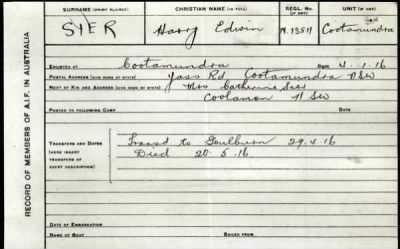 SURNAME (PRINT PLEASE) CHRISTIAN NAME (IN FULL) REGL. No. (IF ANY) UNIT (IF ANY)
SIER Harry Edwin N.13811 Cootamundra
RECORD OF MEMBERS OF A.I.F. IN AUSTRALIA
ENLISTED AT Cootamundra DATE 4.1.16
POSTAL ADDRESS (GIVE NAME OF STATE) Yass Rd, Cootamundra NSW
NEXT OF KIN AND ADDRESS (GIVE NAME OF STATE) Mrs Catherine Sier
Coolamon N SW
POSTED TO FOLLOWING CAMP DATE
TRANSFERS AND DATES Transd to Goulburn 29.4.16
(HERE INSERT Died 20.5.16
TRANSFERS OF
EVERY DESCRIPTION)
DATE OF EMBARKATION
NAME OF BOAT SAILED FROM